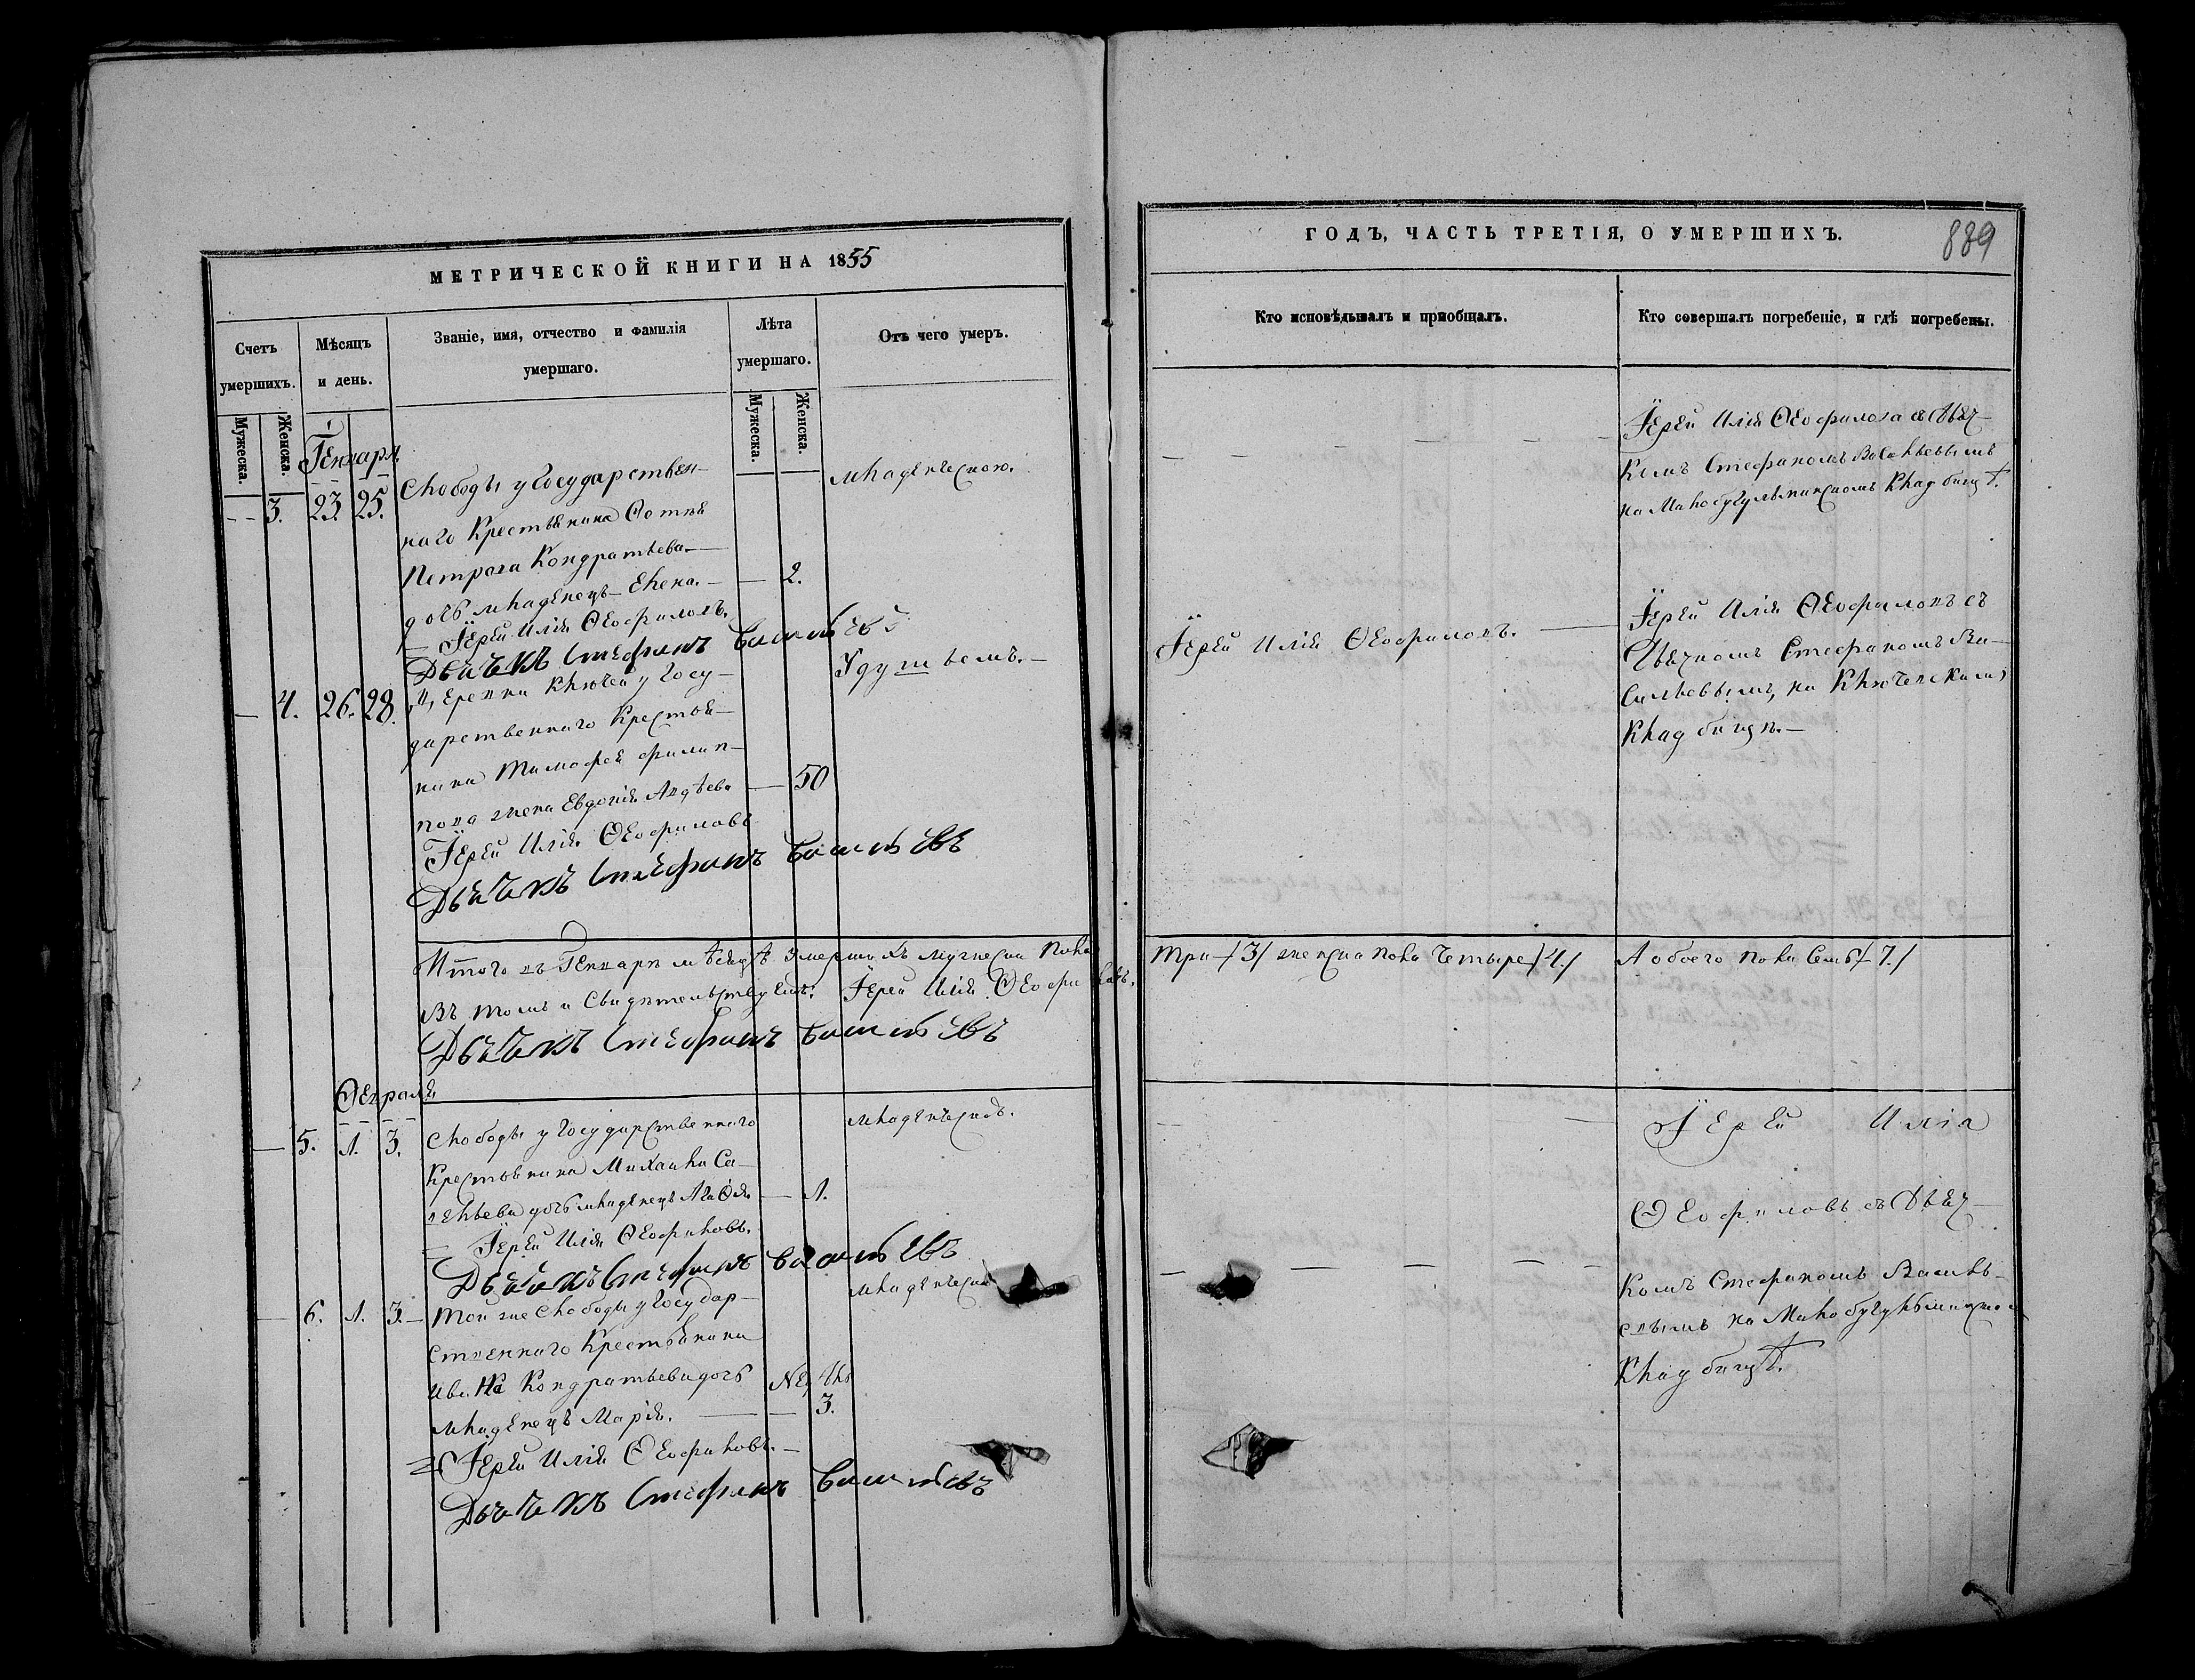 МЕТРИЧЕСКОЙ КНИГИ НА 1855
Счетъ умершихъ.
Мужеска.
Женска.
Мѣсяцъ и день.
Званіе, имя, отчество и фамилія
умершаго.
Лѣта
умершаго.
Мужеска.
Женска.
Отъ чего умеръ.
Генваря
3. 23. 25.
Слободы у Государствен-
наго Крестьянина Фотія
Петрова Кондратьева
дочь младенецъ Елена. — 2.
младенческою.
Іерей Илія Ѳеофиловъ.
Дьячекъ Стефанъ Васильевъ
4. 26. 28.
Деревни Ключей у Госу-
дарственнаго Крестья-
нина Тимофея Филип-
пова жена Евдокія Авдѣева — 50
Удушьемъ.
Іерей Илія Ѳеофиловъ
Дьячекъ Стефанъ Васильевъ
Итого въ Генварѣ мѣсяцѣ умершихъ мужеска пола
въ томъ и свидѣтельствуемъ: Іерей Илія Ѳеофиловъ.
Дьячекъ Стефанъ Васильевъ
Февраля
5. 1. 3.
Слободы у Государственнаго
Крестьянина Михаила Са-
вельева дочь младенецъ Агафія — 1.
младенческою.
Іерей Илія Ѳеофиловъ.
Дьячекъ Стефанъ Васильевъ
6. 1. 3.
Той же Слободы у Государ-
ственнаго Крестьянина
Ивана Кондратьева дочь
младенецъ Марія. — Недѣль 3.
младенческою
Іерей Илія Ѳеофиловъ.
Дьячекъ Стефанъ Васильевъ
ГОДЪ, ЧАСТЬ ТРЕТІЯ, О УМЕРШИХЪ.
889
Кто исповѣдывалъ и пріобщалъ.
Кто совершалъ погребеніе, и гдѣ погребены.
Іерей Илія Ѳеофиловъ съ Дьяч-
комъ Стефаномъ Васильевымъ
на Малобугульминскомъ кладбищѣ.
Іерей Илія Ѳеофиловъ.
Іерей Илія Ѳеофиловъ съ
Дьячкомъ Стефаномъ Ва-
сильевымъ, на Ключевскомъ
кладбищѣ.
Три /3/ женска пола Четыре /4./ А обоего пола Семь /7./
Іерей Илія
Ѳеофиловъ съ Дьяч-
комъ Стефаномъ Василь-
евымъ на Малобугульминском
кладбищѣ.